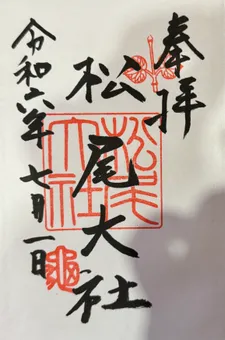 奉拝
松尾大社
松尾大社
令和六年七月一日
亀